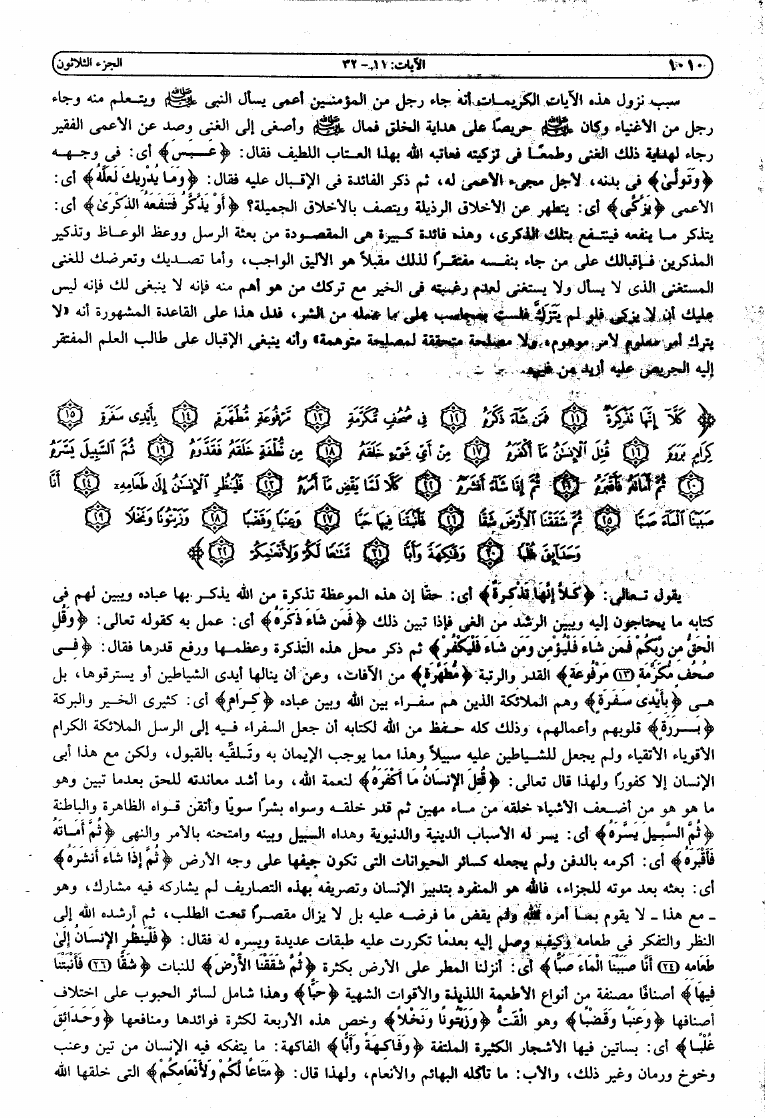 ١٠١٠ الآيات: ١١ - ٣٢ الجزء الثلاثون
سبب نزول هذه الآيات الكريمات أنه جاء رجل من المؤمنين أعمى يسأل النبي ﷺ ويتعلم منه وجاء
رجل من الأغنياء وكان ﷺ حريصًا على هداية الخلق فمال ﷺ وأصغى إلى الغنى وصد عن الأعمى الفقير
رجاء لهداية ذلك الغنى وطمعًا فى تزكيته فعاتبه الله بهذا العتاب اللطيف فقال: ﴿عَبَسَ﴾ أى: فى وجهه
﴿وَتَوَلَّىٰ﴾ فى بدنه، لأجل مجىء الأعمى له، ثم ذكر الفائدة فى الإقبال عليه فقال: ﴿وَمَا يُدْرِيكَ لَعَلَّهُ﴾ أى:
الأعمى ﴿يَزَّكَّىٰ﴾ أى: يتطهر عن الأخلاق الرذيلة ويتصف بالأخلاق الجميلة؟ ﴿أَوْ يَذَّكَّرُ فَتَنفَعَهُ الذِّكْرَىٰ﴾ أى:
يتذكر ما ينفعه فينتفع بتلك الذكرى، وهذه فائدة كبيرة هى المقصودة من بعثة الرسل ووعظ الوعاظ وتذكير
المذكرين فإقبالك على من جاء بنفسه مفتقرًا لذلك مقبلاً هو الأليق الواجب، وأما تصديك وتعرضك للغنى
المستغنى الذى لا يسأل ولا يستفتى لعدم رغبته فى الخير مع تركك من هو أهم منه فإنه لا ينبغى لك فإنه ليس
عليك أن لا يزكى فلو لم يَتَزَكَّ فلست بمحاسب على ما عمله من الشر، فدل هذا على القاعدة المشهورة أنه «لا
يترك أمر معلوم لأمر موهوم، ولا مصلحة متحققة لمصلحة متوهمة» وأنه ينبغى الإقبال على طالب العلم المفتقر
إليه الحريص عليه أزيد من غيره.
﴿كَلَّآ إِنَّهَا تَذْكِرَةٌ ١١ فَمَن شَآءَ ذَكَرَهُۥ ١٢ فِى صُحُفٍ مُّكَرَّمَةٍ ١٣ مَّرْفُوعَةٍ مُّطَهَّرَةٍۭ ١٤ بِأَيْدِى سَفَرَةٍ ١٥
كِرَامٍۭ بَرَرَةٍ ١٦ قُتِلَ ٱلْإِنسَٰنُ مَآ أَكْفَرَهُۥ ١٧ مِنْ أَىِّ شَىْءٍ خَلَقَهُۥ ١٨ مِن نُّطْفَةٍ خَلَقَهُۥ فَقَدَّرَهُۥ ١٩ ثُمَّ ٱلسَّبِيلَ يَسَّرَهُۥ
٢٠ ثُمَّ أَمَاتَهُۥ فَأَقْبَرَهُۥ ٢١ ثُمَّ إِذَا شَآءَ أَنشَرَهُۥ ٢٢ كَلَّا لَمَّا يَقْضِ مَآ أَمَرَهُۥ ٢٣ فَلْيَنظُرِ ٱلْإِنسَٰنُ إِلَىٰ طَعَامِهِۦٓ ٢٤ أَنَّا
صَبَبْنَا ٱلْمَآءَ صَبًّا ٢٥ ثُمَّ شَقَقْنَا ٱلْأَرْضَ شَقًّا ٢٦ فَأَنۢبَتْنَا فِيهَا حَبًّا ٢٧ وَعِنَبًا وَقَضْبًا ٢٨ وَزَيْتُونًا وَنَخْلًا ٢٩
وَحَدَآئِقَ غُلْبًا ٣٠ وَفَٰكِهَةً وَأَبًّا ٣١ مَّتَٰعًا لَّكُمْ وَلِأَنْعَٰمِكُمْ ٣٢﴾
يقول تعالى: ﴿كَلَّا إِنَّهَا تَذْكِرَةٌ﴾ أى: حقًا إن هذه الموعظة تذكرة من الله يذكر بها عباده ويبين لهم فى
كتابه ما يحتاجون إليه ويبين الرشد من الغى فإذا تبين ذلك ﴿فَمَن شَاءَ ذَكَرَهُ﴾ أى: عمل به كقوله تعالى: ﴿وَقُلِ
الْحَقُّ مِن رَّبِّكُمْ فَمَن شَاءَ فَلْيُؤْمِن وَمَن شَاءَ فَلْيَكْفُرْ﴾ ثم ذكر محل هذه التذكرة وعظمها ورفع قدرها فقال: ﴿فِى
صُحُفٍ مُّكَرَّمَةٍ (١٣) مَرْفُوعَةٍ﴾ القدر والرتبة ﴿مُّطَهَّرَةٍ﴾ من الآفات، وعن أن ينالها أيدى الشياطين أو يسترقوها، بل
هى ﴿بِأَيْدِى سَفَرَةٍ﴾ وهم الملائكة الذين هم سفراء بين الله وبين عباده ﴿كِرَامٍ﴾ أى: كثيرى الخير والبركة
﴿بَرَرَةٍ﴾ قلوبهم وأعمالهم، وذلك كله حفظ من الله لكتابه أن جعل السفراء فيه إلى الرسل الملائكة الكرام
الأقوياء الأتقياء ولم يجعل للشياطين عليه سبيلاً وهذا مما يوجب الإيمان به وتَلقِّيه بالقبول، ولكن مع هذا أبى
الإنسان إلا كفورًا ولهذا قال تعالى: ﴿قُتِلَ الإِنسَانُ مَا أَكْفَرَهُ﴾ لنعمة الله، وما أشد معاندته للحق بعدما تبين وهو
ما هو هو من أضعف الأشياء خلقه من ماء مهين ثم قدر خلقه وسواه بشرًا سويًا وأتقن قواه الظاهرة والباطنة
﴿ثُمَّ السَّبِيلَ يَسَّرَهُ﴾ أى: يسر له الأسباب الدينية والدنيوية وهداه السبيل وبينه وامتحنه بالأمر والنهى ﴿ثُمَّ أَمَاتَهُ
فَأَقْبَرَهُ﴾ أى: أكرمه بالدفن ولم يجعله كسائر الحيوانات التى تكون جيفها على وجه الأرض ﴿ثُمَّ إِذَا شَاءَ أَنشَرَهُ﴾
أى: بعثه بعد موته للجزاء، فالله هو المنفرد بتدبير الإنسان وتصريفه بهذه التصاريف لم يشاركه فيه مشارك، وهو
ـ مع هذا ـ لا يقوم بما أمره الله ولم يقض ما فرضه عليه بل لا يزال مقصرًا تحت الطلب، ثم أرشده الله إلى
النظر والتفكر فى طعامه وكيف وصل إليه بعدما تكررت عليه طبقات عديدة ويسره له فقال: ﴿فَلْيَنظُرِ الإِنسَانُ إِلَىٰ
طَعَامِهِ (٢٤) أَنَّا صَبَبْنَا الْمَاءَ صَبًّا﴾ أى: أنزلنا المطر على الأرض بكثرة ﴿ثُمَّ شَقَقْنَا الأَرْضَ﴾ للنبات ﴿شَقًّا (٢٦) فَأَنبَتْنَا
فِيهَا﴾ أصنافًا مصنفة من أنواع الأطعمة اللذيذة والأقوات الشهية ﴿حَبًّا﴾ وهذا شامل لسائر الحبوب على اختلاف
أصنافها ﴿وَعِنَبًا وَقَضْبًا﴾ وهو القَتُّ ﴿وَزَيْتُونًا وَنَخْلاً﴾ وخص هذه الأربعة لكثرة فوائدها ومنافعها ﴿وَحَدَائِقَ
غُلْبًا﴾ أى: بساتين فيها الأشجار الكثيرة الملتفة ﴿وَفَاكِهَةً وَأَبًّا﴾ الفاكهة: ما يتفكه فيه الإنسان من تين وعنب
وخوخ ورمان وغير ذلك، والأب: ما تأكله البهائم والأنعام، ولهذا قال: ﴿مَتَاعًا لَّكُمْ وَلأَنْعَامِكُمْ﴾ التى خلقها الله